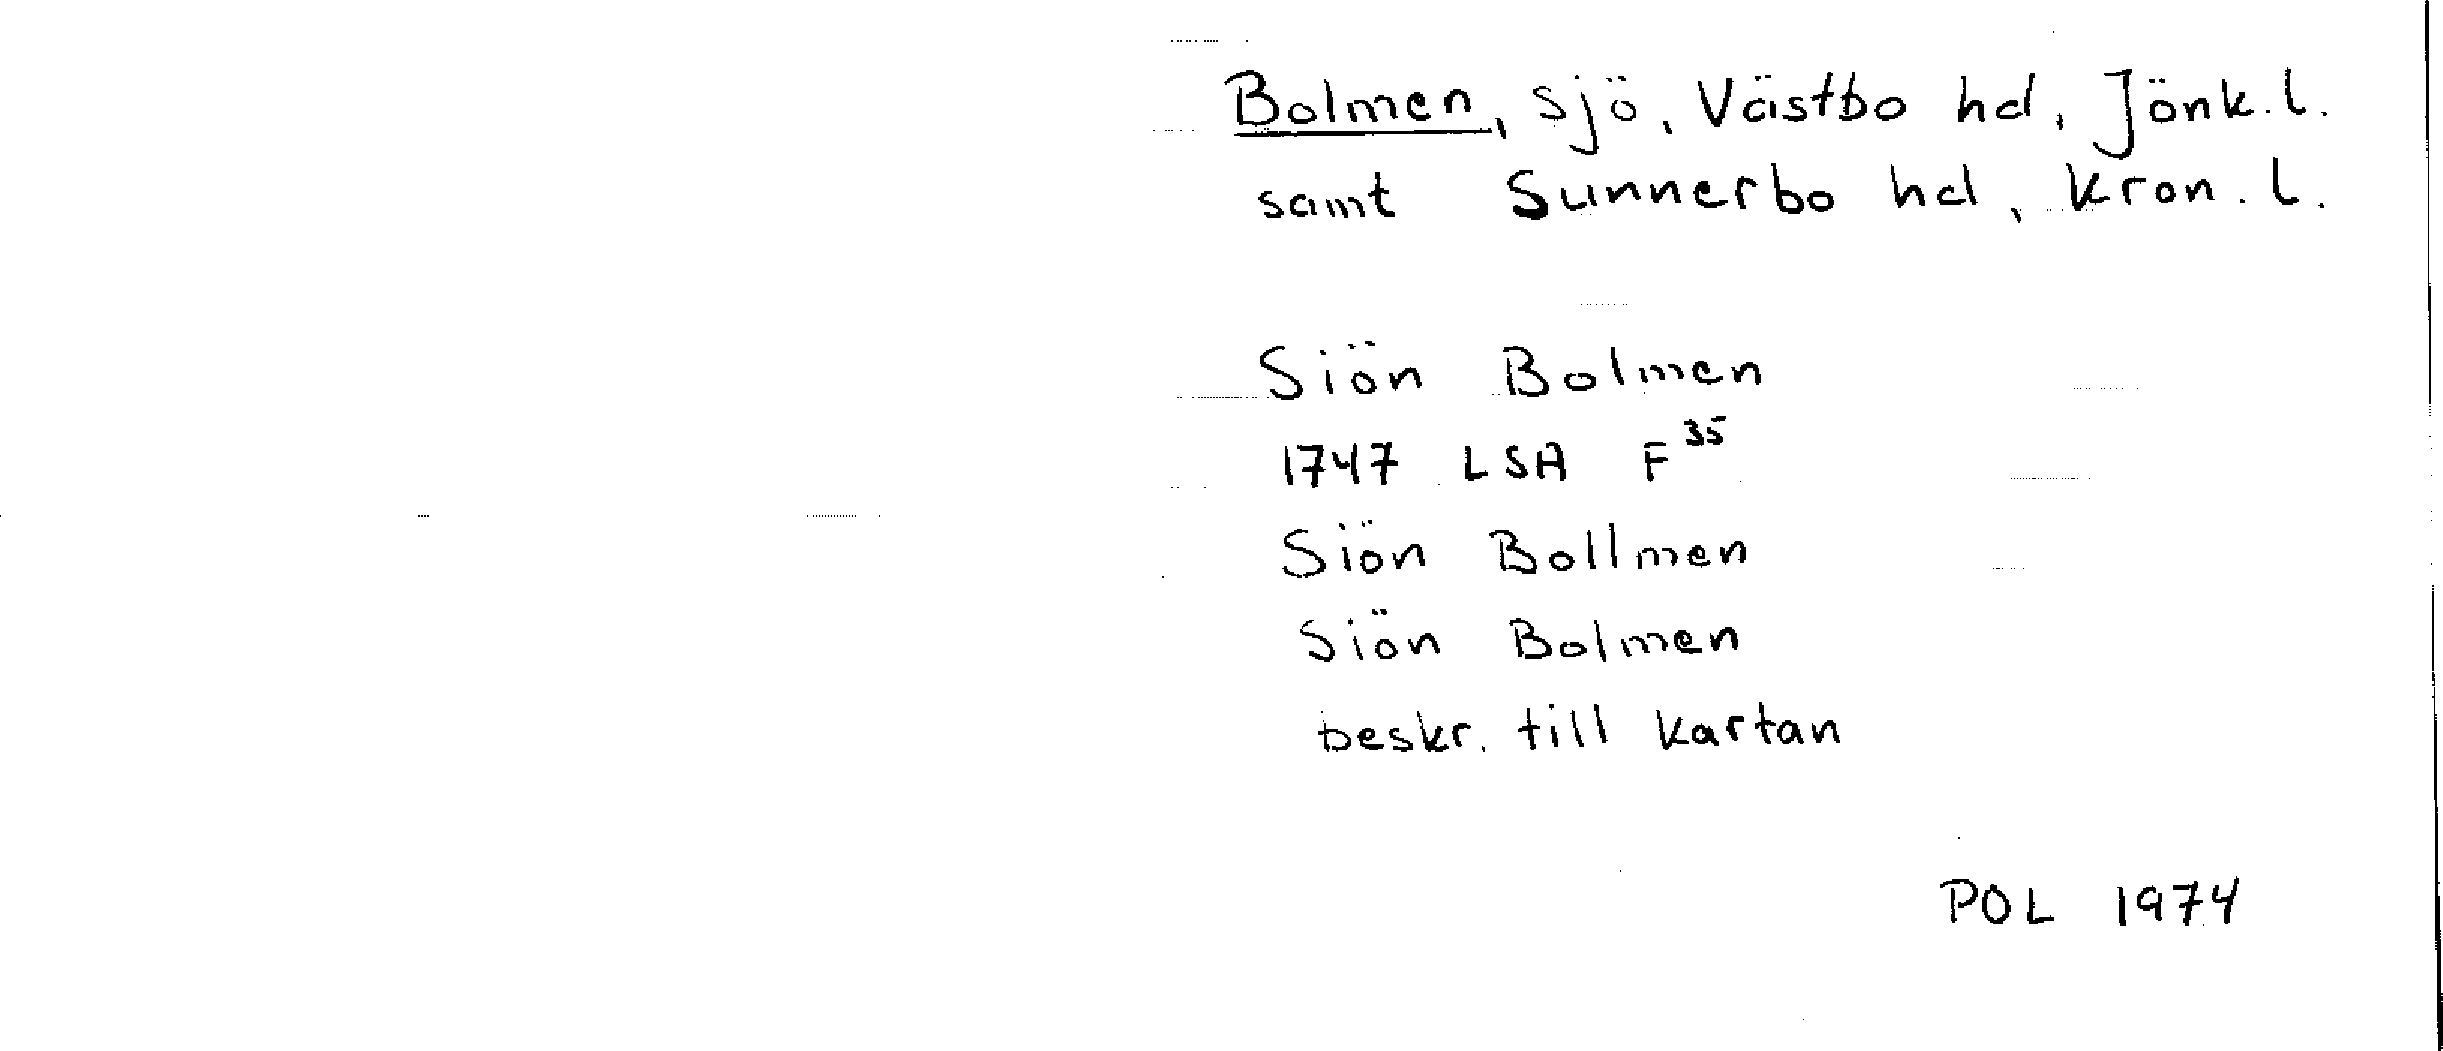 Bolmen, sjö, Västbo hd, Jönk.l.
samt Sunnerbo hd, Kron.l.
Siön Bolmen
1747 LSA F³⁵
Siön Bollmen
Siön Bolmen
beskr. till kartan
POL 1974